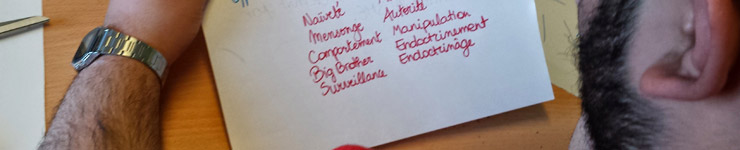 Naïveté Autorité
Mensonge Manipulation
Comportement Endoctrinement
Big Brother Endoctrinâge
Surveillance